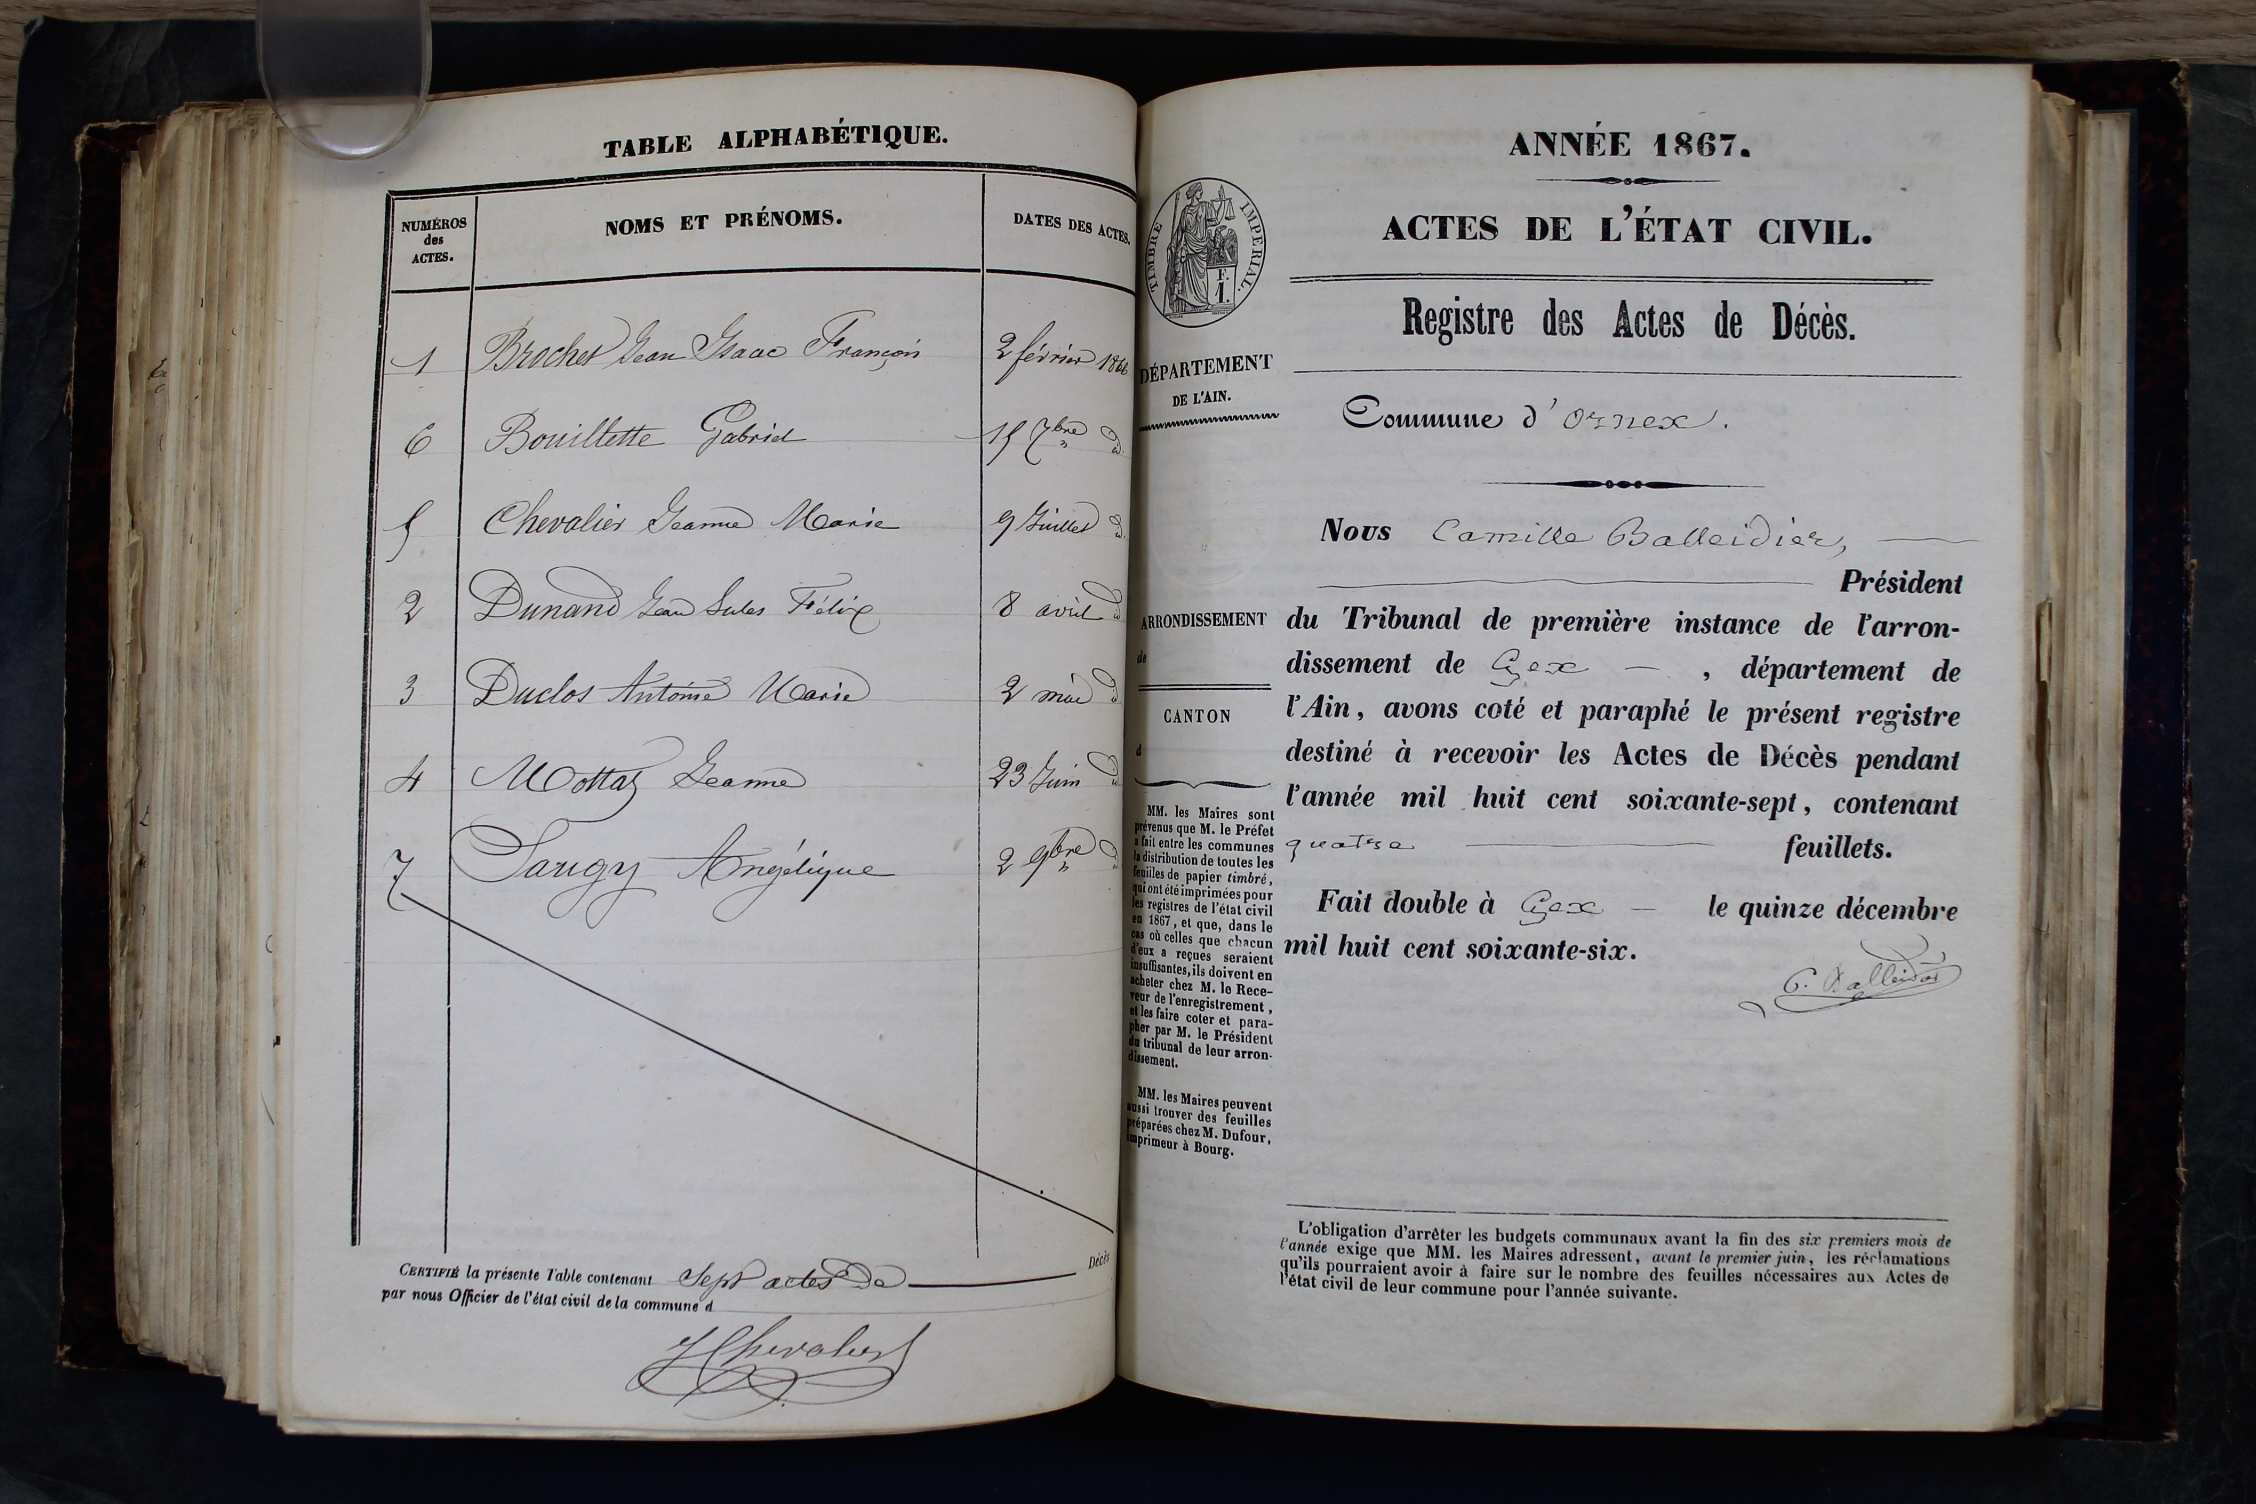 TABLE ALPHABÉTIQUE.
NUMÉROS des ACTES.
NOMS ET PRÉNOMS.
DATES DES ACTES.
1 Brochet Jean Isaac François 2 février 1866
6 Bouillette Gabriel 15 7bre d°
5 Chevalier Jeanne Marie 9 Juillet d°
2 Dunand Jean Jules Félix 8 avril d°
3 Duclos Antoine Marie 2 mai d°
4 Mottaz Jeanne 23 Juin d°
7 Saugy Angélique 2 9bre d°
CERTIFIÉ la présente Table contenant Sept actes de Décès
par nous Officier de l'état civil de la commune d
J Chevalier
ANNÉE 1867.
ACTES DE L'ÉTAT CIVIL.
TIMBRE IMPÉRIAL.
F.
1.
Registre des Actes de Décès.
DÉPARTEMENT
DE L'AIN.
Commune d'Ornex.
Nous Camille Balleidier,
Président
ARRONDISSEMENT
de
du Tribunal de première instance de l'arron-
dissement de Gex , département de
CANTON
d
l'Ain, avons coté et paraphé le présent registre
destiné à recevoir les Actes de Décès pendant
l'année mil huit cent soixante-sept, contenant
quatre feuillets.
Fait double à Gex le quinze décembre
mil huit cent soixante-six.
C. Balleidier
MM. les Maires sont
prévenus que M. le Préfet
a fait entre les communes
la distribution de toutes les
feuilles de papier timbré,
qui ont été imprimées pour
les registres de l'état civil
en 1867, et que, dans le
cas où celles que chacun
d'eux a reçues seraient
insuffisantes, ils doivent en
acheter chez M. le Rece-
veur de l'enregistrement,
et les faire coter et para-
pher par M. le Président
du tribunal de leur arron-
dissement.
MM. les Maires peuvent
aussi trouver des feuilles
préparées chez M. Dufour,
imprimeur à Bourg.
L'obligation d'arrêter les budgets communaux avant la fin des six premiers mois de
l'année exige que MM. les Maires adressent, avant le premier juin, les réclamations
qu'ils pourraient avoir à faire sur le nombre des feuilles nécessaires aux Actes de
l'état civil de leur commune pour l'année suivante.